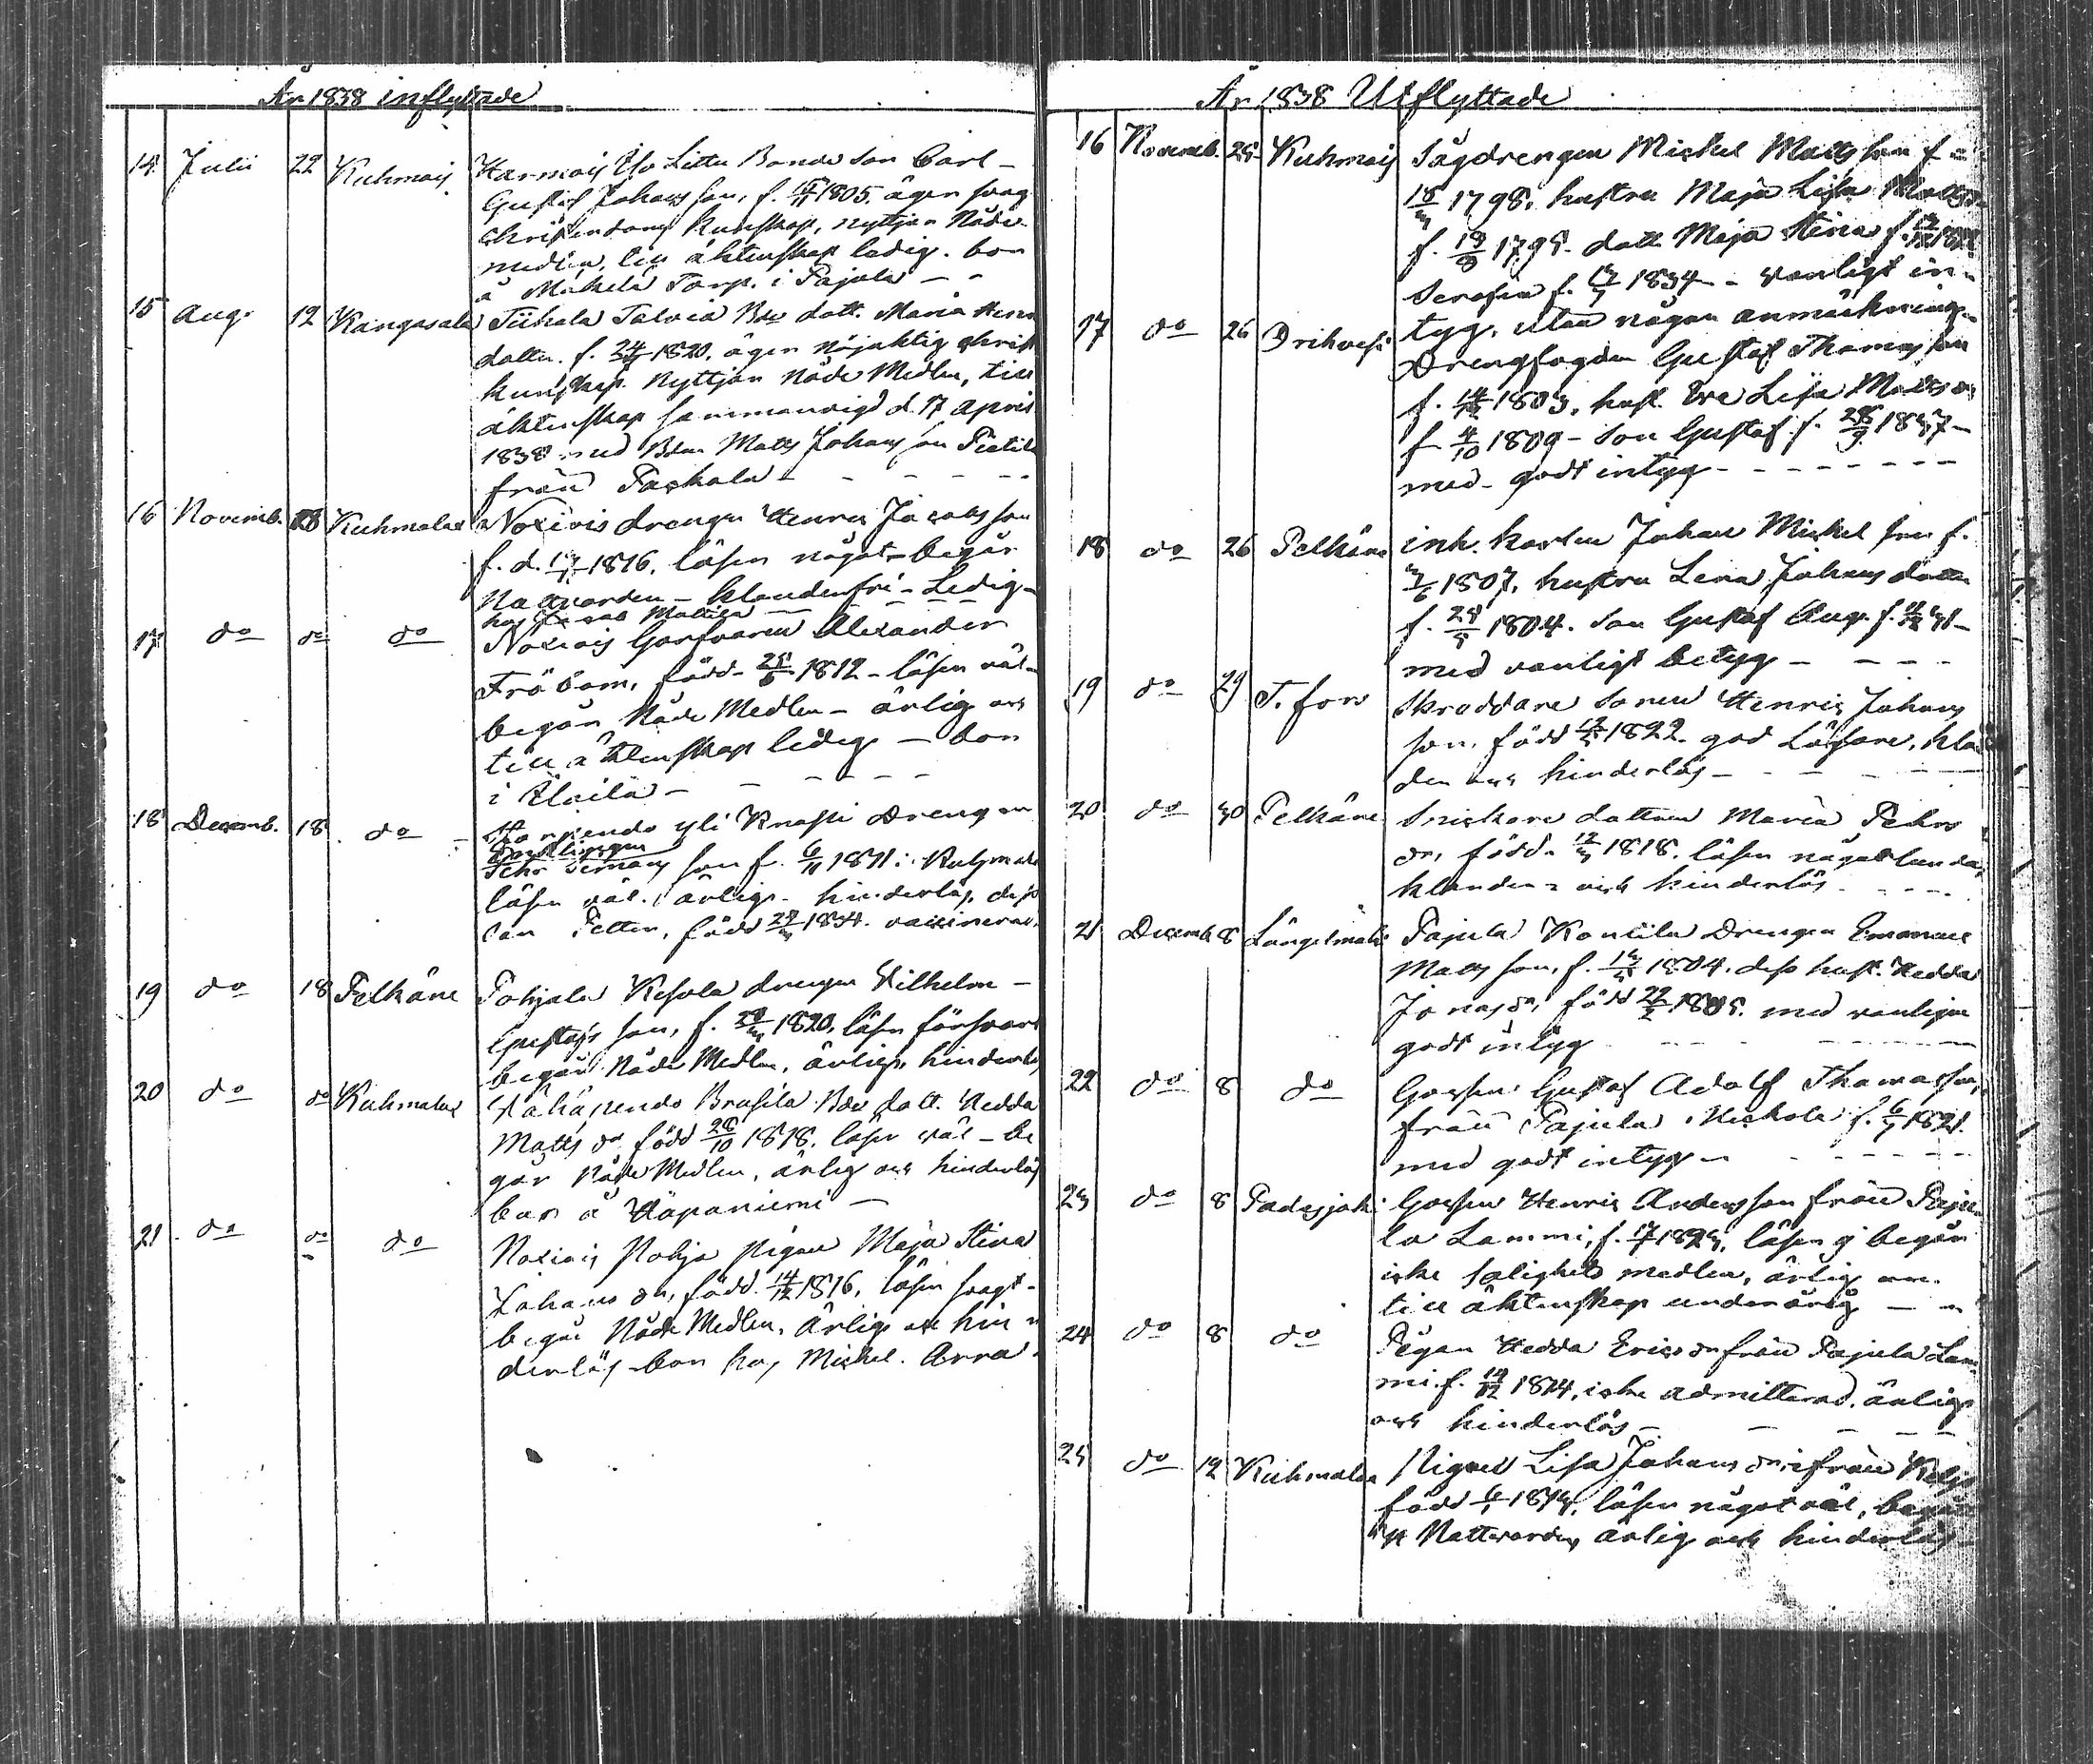 År 1838 inflyttade
14 Julii 22 Kuhmois Harmois Iso Littu Bonde son Carl
Gustaf Johansson, f. 1805, äger svag
christendoms kunskap, nyttjar Nåde
medlen, till äktenskap ledig. bor
å Mäkelä Torp. i Pajula
15 Aug. 12 Kangasala Tiihala Talvia Bde dott. Maria Henr
dotter. f. 24 1820. äger nöjaktig christ
kunskap. nyttjar Nåde Medlen, till
äktenskap sammanvigd d. 17 April
1838 med Bdn Matts Johansson Pietilä
från Paskala
16 Novemb. Kuhmalax drengen Henric Jacobsson
f. d. 1816. läser något begår
Nattvarden - klanderfri - Ledig
hos Mattila
17 do do do Garfvaren Alexander
Fröbom, född 1812 - läser väl
begår Nåde Medlen - ärlig och
till äktenskap ledig - bor
i
18 Decemb. 18 do yli Knasti Drengen
son f. 6/11 1811 i
läser väl. ärlig. hinderlös, dess
son Petter, född 1834. vaccinerad.
19 do 18 Pelkäne Pohjala Kesola drengen Wilhelm
Gustafs son, f. 1820, läser försvarl
begår Nåde Medlen, ärlig, hinderlös
20 do do Kuhmalax Vähäpendo Brusila Bde dott. Hedda
Matts dr född 28/10 1818. läser väl - be
går Nåde Medlen, ärlig och hinderlös
bor å Häpaniemi
21 do do do Pohja Pigan Maja Stina
Johans dr, född 14/12 1816, läser svagt
begår Nåde Medlen. Ärlig och hin
derlös - bor hos Mickel. Arra
År 1838 Utflyttade
16 Novemb. 25 Kuhmois Sågdrengen Mickel Mattsson f.
18 1798, hustru Maja Lisa Mattsdr
f. 1795. dott. Maja Stina f.
Serafia f. 1834 - vanligt in-
tyg, utan någon anmärkning
17 do 26 Orihvesi Drengfogden Gustaf Thomasson
f. 1803, hust. Eva Lisa Matts dr
f. 4/10 1809 - son Gustaf f. 28/9 1837
med godt intyg
18 do 26 Pelkäne inh. karlen Johan Mickelsson f.
1807, hustru Lena Johans dotter
f. 1804. son Gustaf Aug. f.
med vanligt betyg
19 do 29 T. fors Skraddare sonen Henric Johans
son, född 1822. god Läsare, klan
der och hinderlös
20 do 30 Pelkäne Snickare dottren Maria Pehrs
dr, född 1818. läser någorlunda,
klander- och hinderlös
21 Decemb 8 Längelmäki Pajula Kontila Drengen Emanuel
Mattsson, f. 1804. dess hust. Hedda
Jonas dr, född 1805. med vanligen
godt intyg
22 do 8 do Gossen Gustaf Adolf Thomasson,
från Pajula Heskola f. 1821.
med godt intyg
23 do 8 Padasjoki Gossen Henric Andersson från Paju
la Lammi, f. 1823, läser g begår
icke salighets medlen, ärlig och
till äktenskap underårig
24 do 8 do Pigan Hedda Erics dr från Pajula Lam
mi. f. 1824, icke admitterad. ärlig
och hinderlös
25 do 12 Kuhmalax Pigan Lisa Johans dr ifrån
född 1813, läser något väl, begår
Nattvarden, ärlig och hinderlös